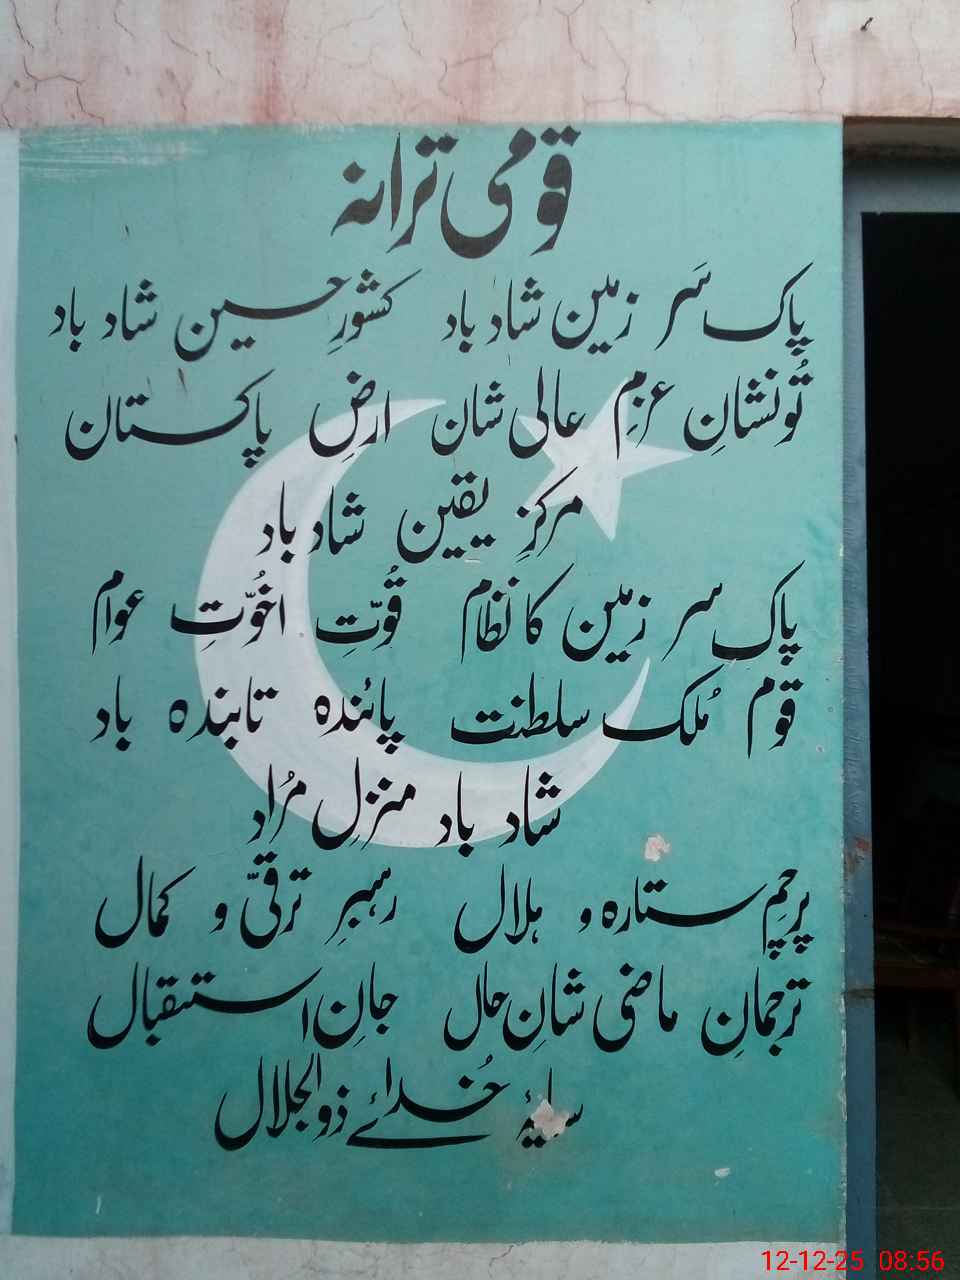 قومی ترانہ
پاک سَر زمین شاد باد کشورِ حسین شاد باد
تُو نشانِ عزمِ عالی شان ارضِ پاکستان
مرکزِ یقین شاد باد
پاک سر زمین کا نظام قُوّتِ اخُوّتِ عوام
قوم مُلک سلطنت پائندہ تابندہ باد
شاد باد منزلِ مُراد
پرچمِ ستارہ و ہلال رہبرِ ترقیّ و کمال
ترجمانِ ماضی شانِ حال جانِ استقبال
سایۂ خُدائے ذوالجلال
12-12-25 08:56